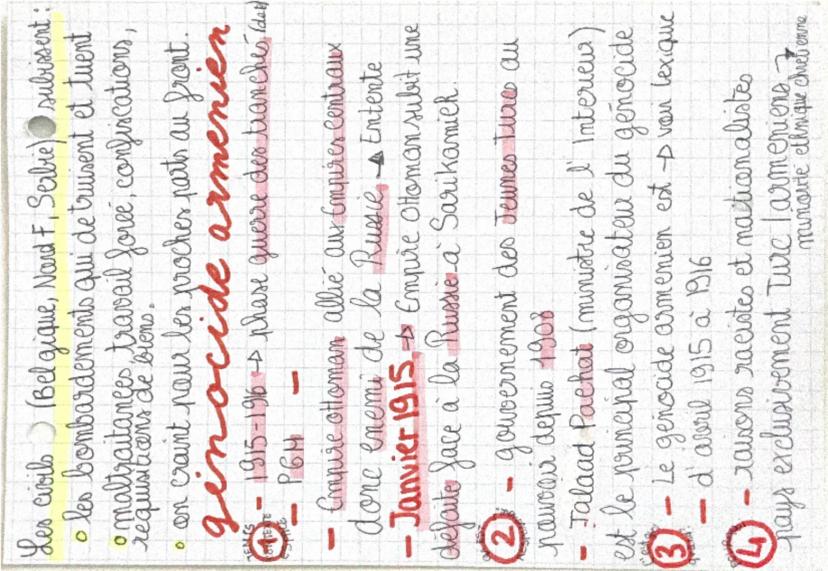 Les civils (Belgique, Nord F, Serbie) subissent :
o les bombardements qui detruisent et tuent
o maltraitances, travail forcé, confiscations,
réquisitions de biens.
o on craint pour les proches partis au front.
génocide armenien
1 - 1915-1916 → phase guerre des tranchés (def)
- PGM -
- Empire ottoman allié aux Empires centraux
donc enemi de la Russie → Entente
- Janvier 1915 → Empire Ottoman subit une
défaite face à la Russie à Sarikamich.
2 - gouvernement des Jeunes Turcs au
pouvoir depuis 1908
- Talaad Pachat (ministre de l'Interieur)
est le principal organisateur du génocide
3 - Le génocide armenien est → voir lexique
- d'avril 1915 à 1916
4 - raisons racistes et nationalistes
pays exclusivement Turc / armeniens →
minorité éthnique chrétienne